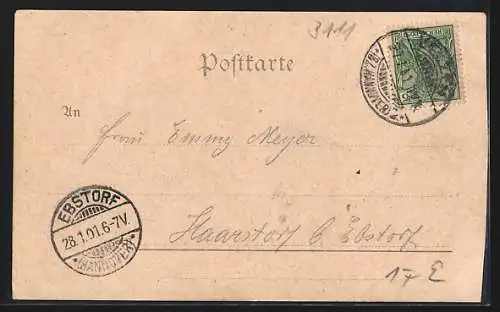 3111
Postkarte
An
Frau Emmy Meyer
EBSTORF
28.1.01.6-7V.
*(HANNOVER)*
Haarstorf b. Ebstorf
17 E